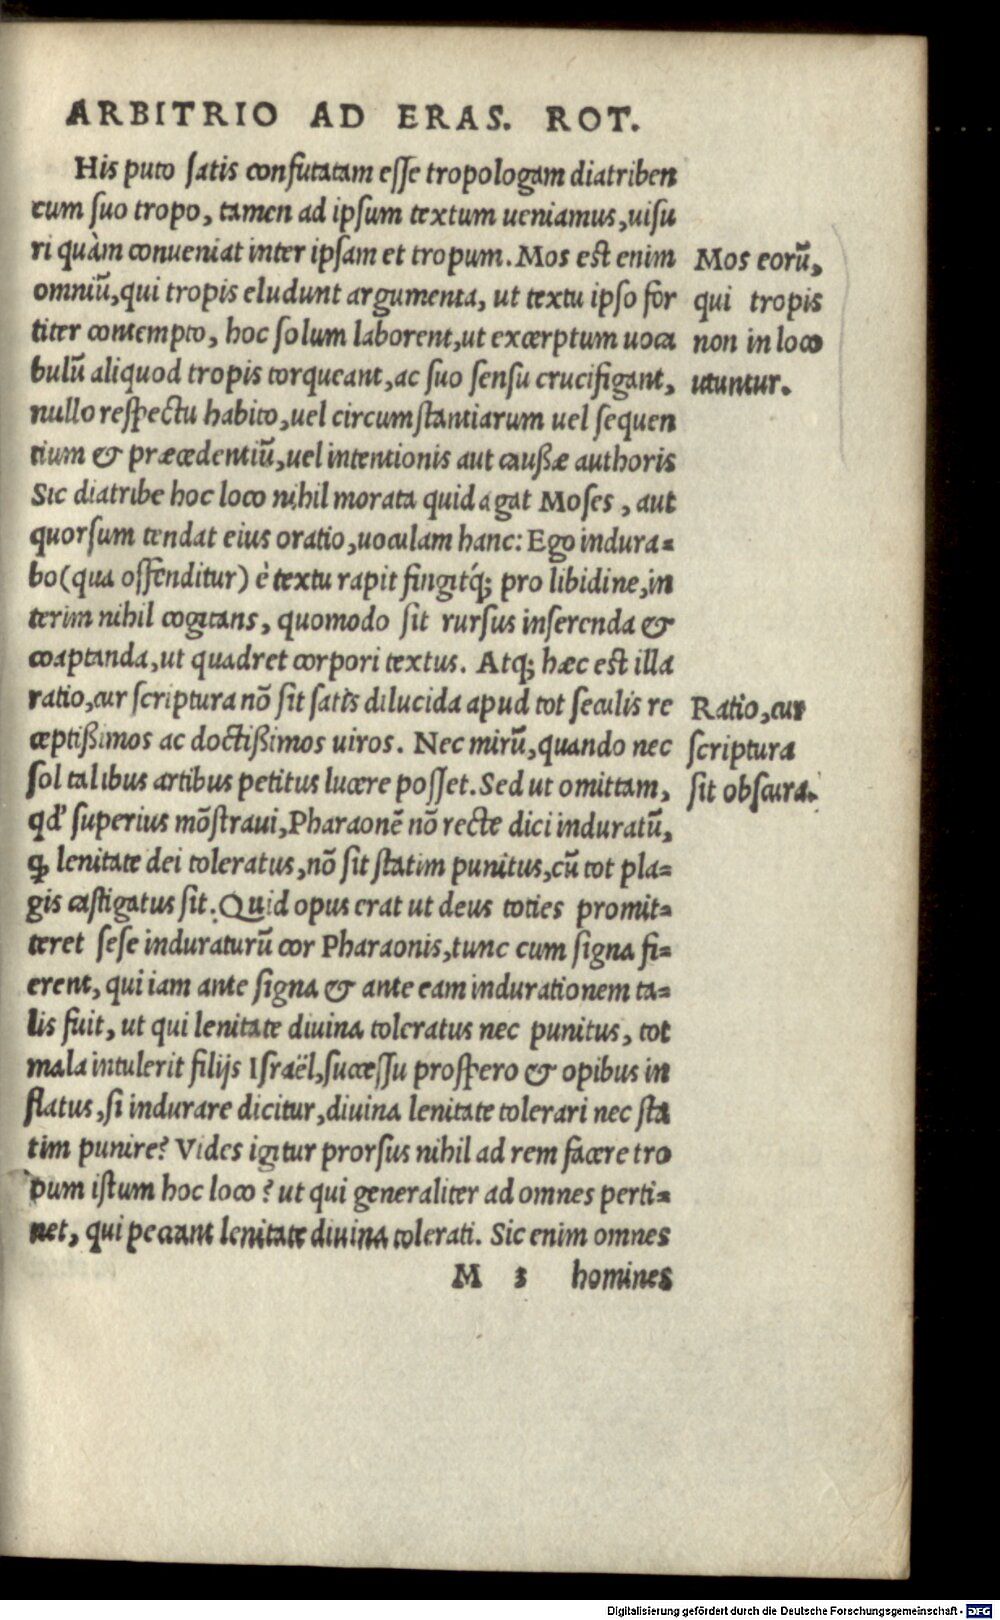 ARBITRIO AD ERAS. ROT.
His puto satis confutatam esse tropologam diatriben
cum suo tropo, tamen ad ipsum textum ueniamus, uisu
ri quàm conueniat inter ipsam et tropum. Mos est enim
omniũ, qui tropis eludunt argumenta, ut textu ipso for
titer contempto, hoc solum laborent, ut excerptum uoca
bulũ aliquod tropis torqueant, ac suo sensu crucifigant,
nullo respectu habito, uel circumstantiarum uel sequen
tium & præcedentiũ, uel intentionis aut caußæ authoris
Sic diatribe hoc loco nihil morata quid agat Moses, aut
quorsum tendat eius oratio, uoculam hanc: Ego indura=
bo (qua offenditur) è textu rapit fingitq́; pro libidine, in
terim nihil cogitans, quomodo sit rursus inserenda &
coaptanda, ut quadret corpori textus. Atq; hæc est illa
ratio, cur scriptura nõ sit satis dilucida apud tot seculis re
ceptißimos ac doctißimos uiros. Nec mirũ, quando nec
sol talibus artibus petitus lucere posset. Sed ut omittam,
qď superius mõstraui, Pharaonẽ nõ recte dici induratũ,
ꝙ lenitate dei toleratus, nõ sit statim punitus, cũ tot pla=
gis castigatus sit. Quid opus erat ut deus toties promit=
teret sese induraturũ cor Pharaonis, tunc cum signa fi=
erent, qui iam ante signa & ante eam indurationem ta=
lis fuit, ut qui lenitate diuina toleratus nec punitus, tot
mala intulerit filijs Israël, successu prospero & opibus in
flatus, si indurare dicitur, diuina lenitate tolerari nec sta
tim punire? Vides igitur prorsus nihil ad rem facere tro
pum istum hoc loco? ut qui generaliter ad omnes perti=
net, qui peccant lenitate diuina tolerati. Sic enim omnes
M 3 homines
Mos eorũ,
qui tropis
non in loco
utuntur.
Ratio, cur
scriptura
sit obscura.
Digitalisierung gefördert durch die Deutsche Forschungsgemeinschaft - DFG